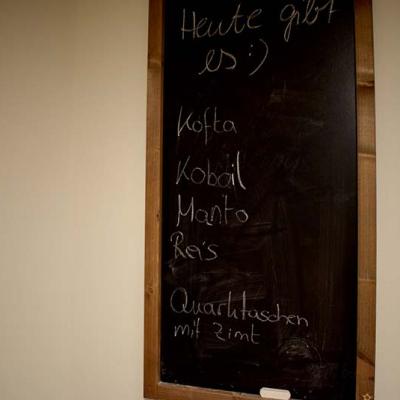 Heute gibt
es :)
Kofta
Kobail
Manto
Reis
Quarktaschen
mit Zimt